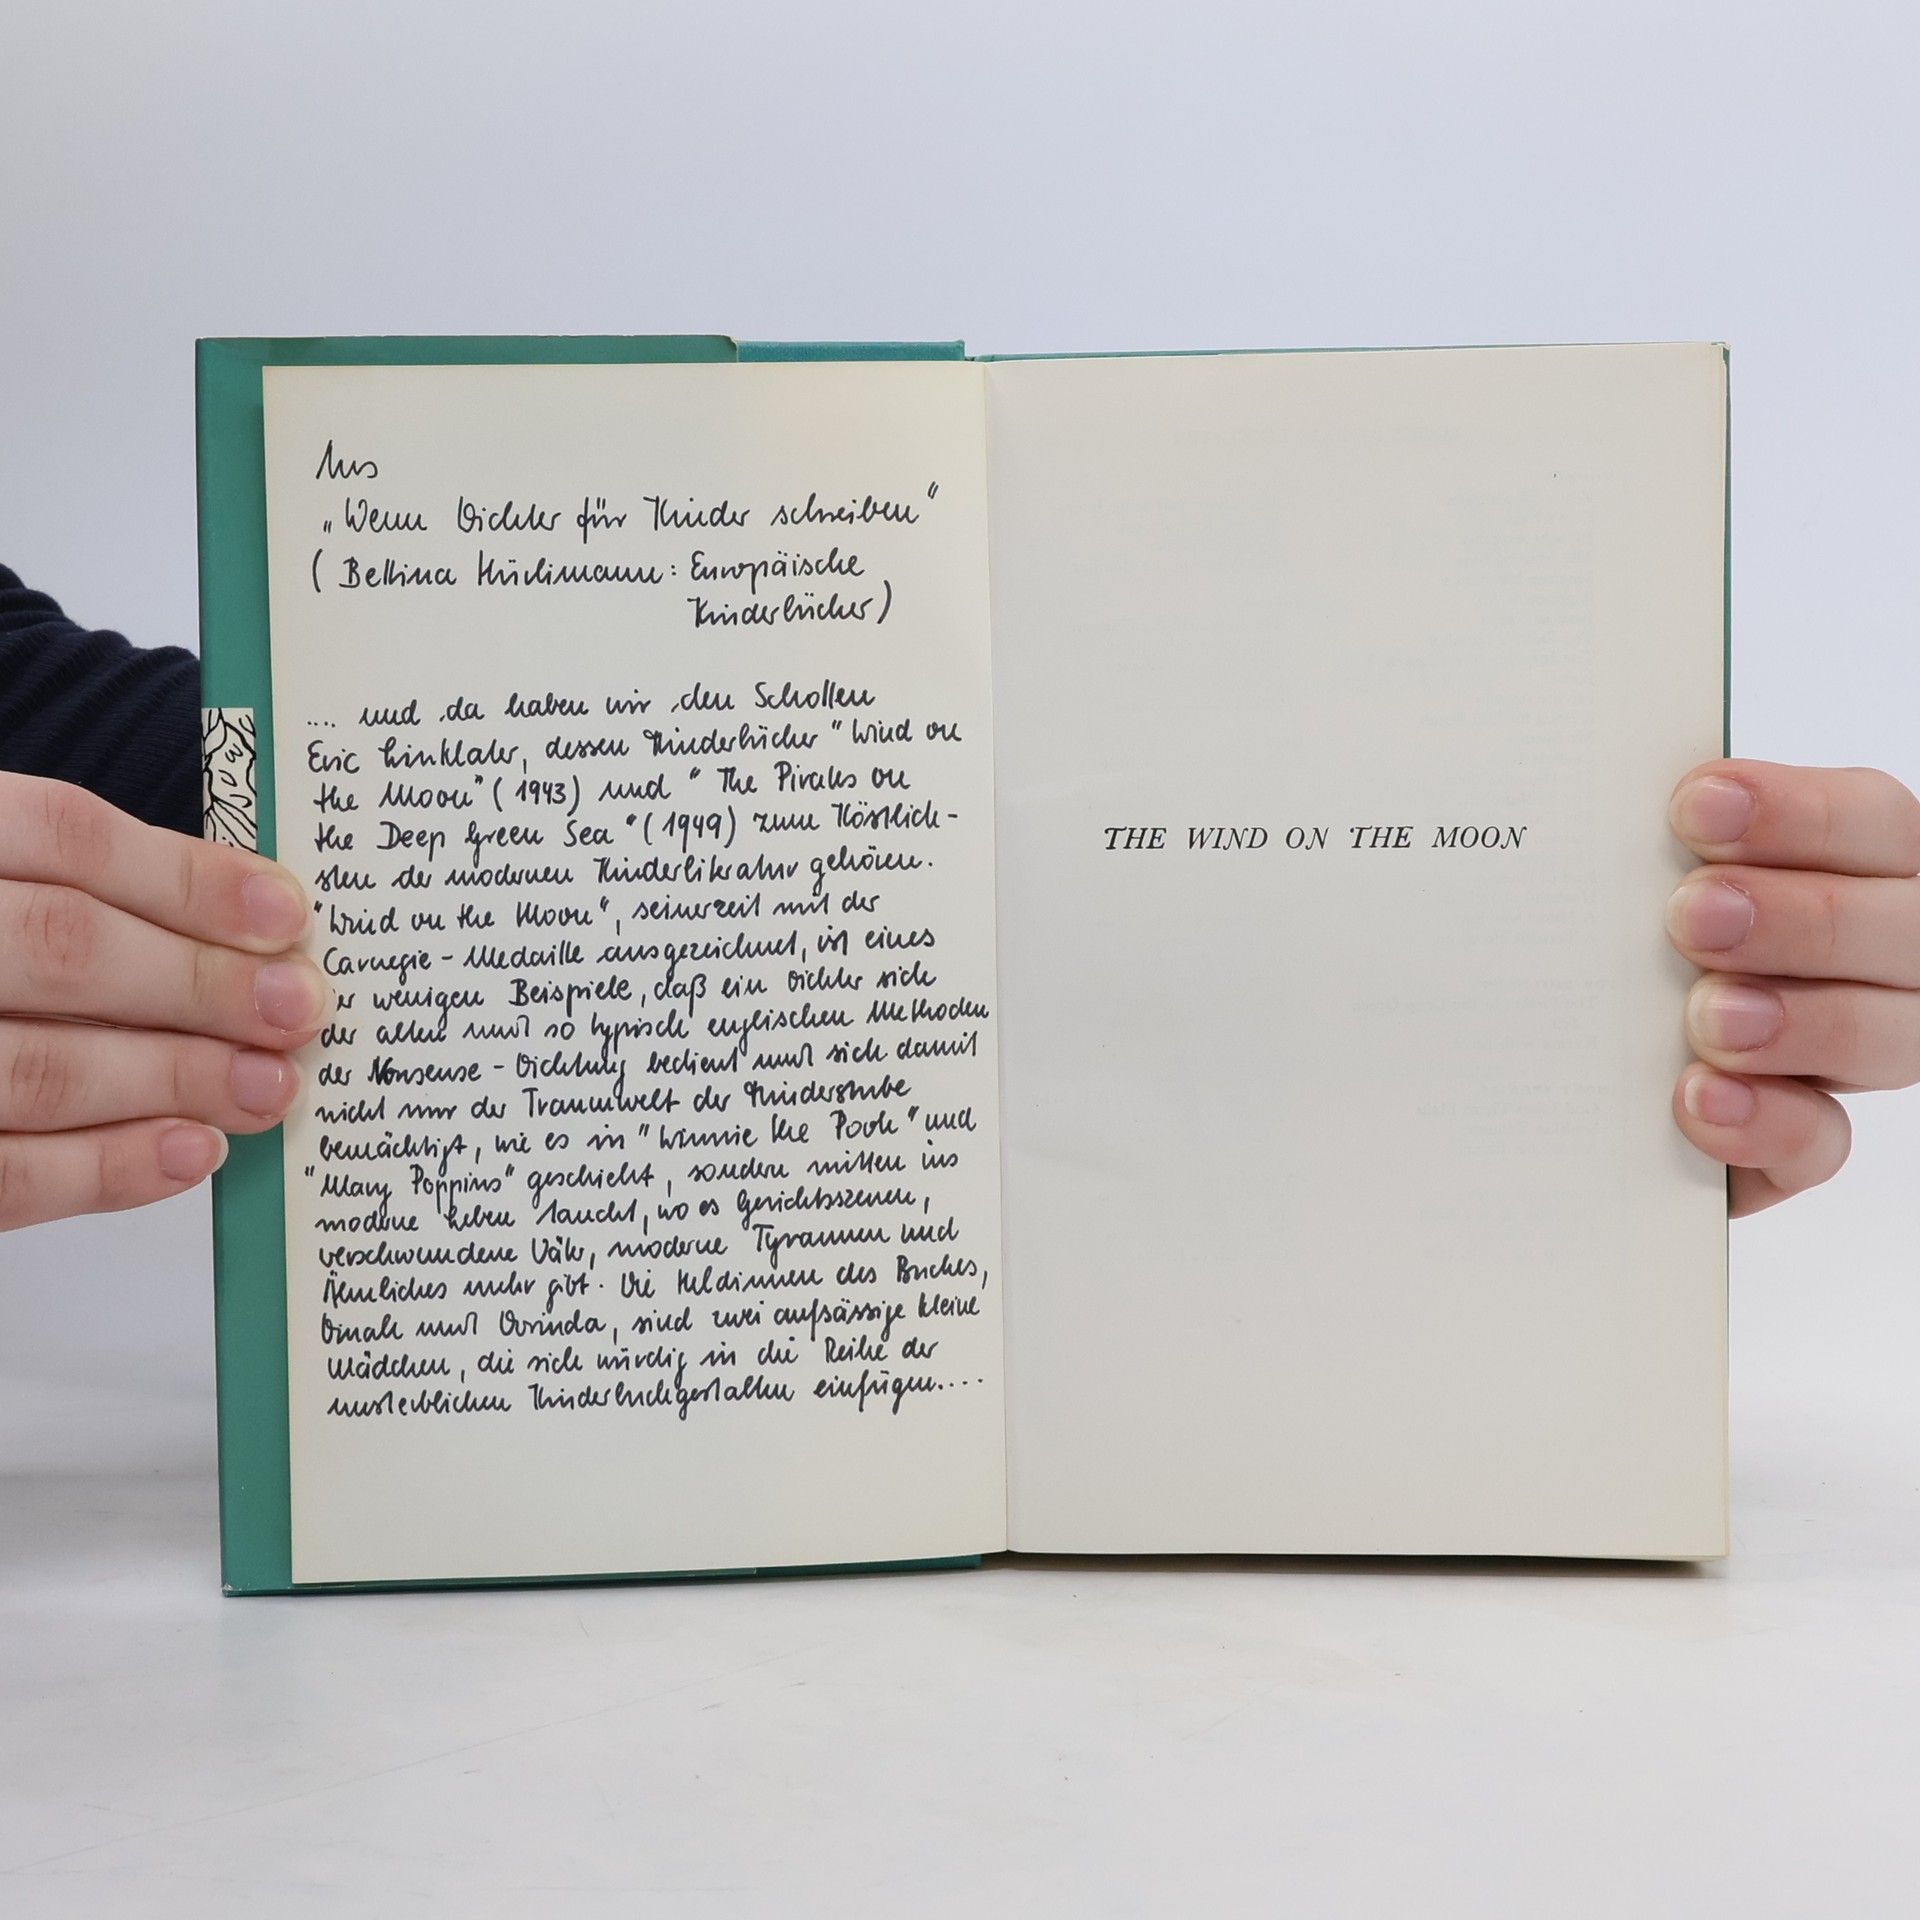 Aus
„Wenn Dichter für Kinder schreiben"
( Bettina Hürlimann: Europäische
Kinderbücher)
.... und da haben wir den Schotten
Eric Linklater, dessen Kinderbücher "Wind on
the Moon" (1943) und "The Pirates on
the Deep Green Sea" (1949) zum Köstlich-
sten der modernen Kinderliteratur gehören.
"Wind on the Moon", seinerzeit mit der
Carnegie-Medaille ausgezeichnet, ist eines
er wenigen Beispiele, daß ein Dichter sich
der alten und so typisch englischen Methoden
der Nonsense-Dichtung bedient und sich damit
nicht nur der Traumwelt der Kinderstube
bemächtigt, wie es in "Winnie the Pooh" und
"Mary Poppins" geschieht, sondern mitten ins
moderne Leben taucht, wo es Gerichtsszenen,
verschwundene Väter, moderne Tyrannen und
Ähnliches mehr gibt. Die Heldinnen des Buches,
Dinah und Dorinda, sind zwei aufsässige kleine
Mädchen, die sich würdig in die Reihe der
unsterblichen Kinderbuchgestalten einfügen....
THE WIND ON THE MOON